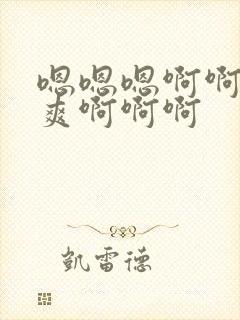 嗯嗯嗯啊啊
爽啊啊啊
凯雷德